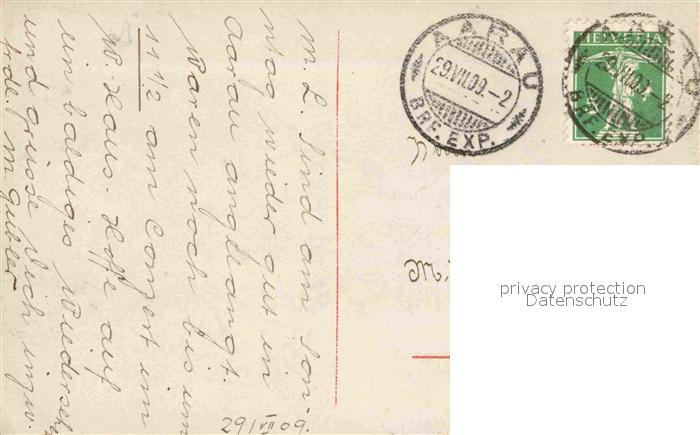 M. L. Sind am Son-
ntag wieder gut in
Aarau angelangt.
Waren noch bis um
11 1/2 am Conzert im
W. Haus. Hoffe auf
ein baldiges Wiederseh
und grüsse Dich inzw.
frdl. M Gubler
29/VII 09.
AARAU
29.VII.09.-2
BRF. EXP.
HELVETIA
AARAU
29.VII.09.-2
BRF. EXP.
M.
privacy protection
Datenschutz